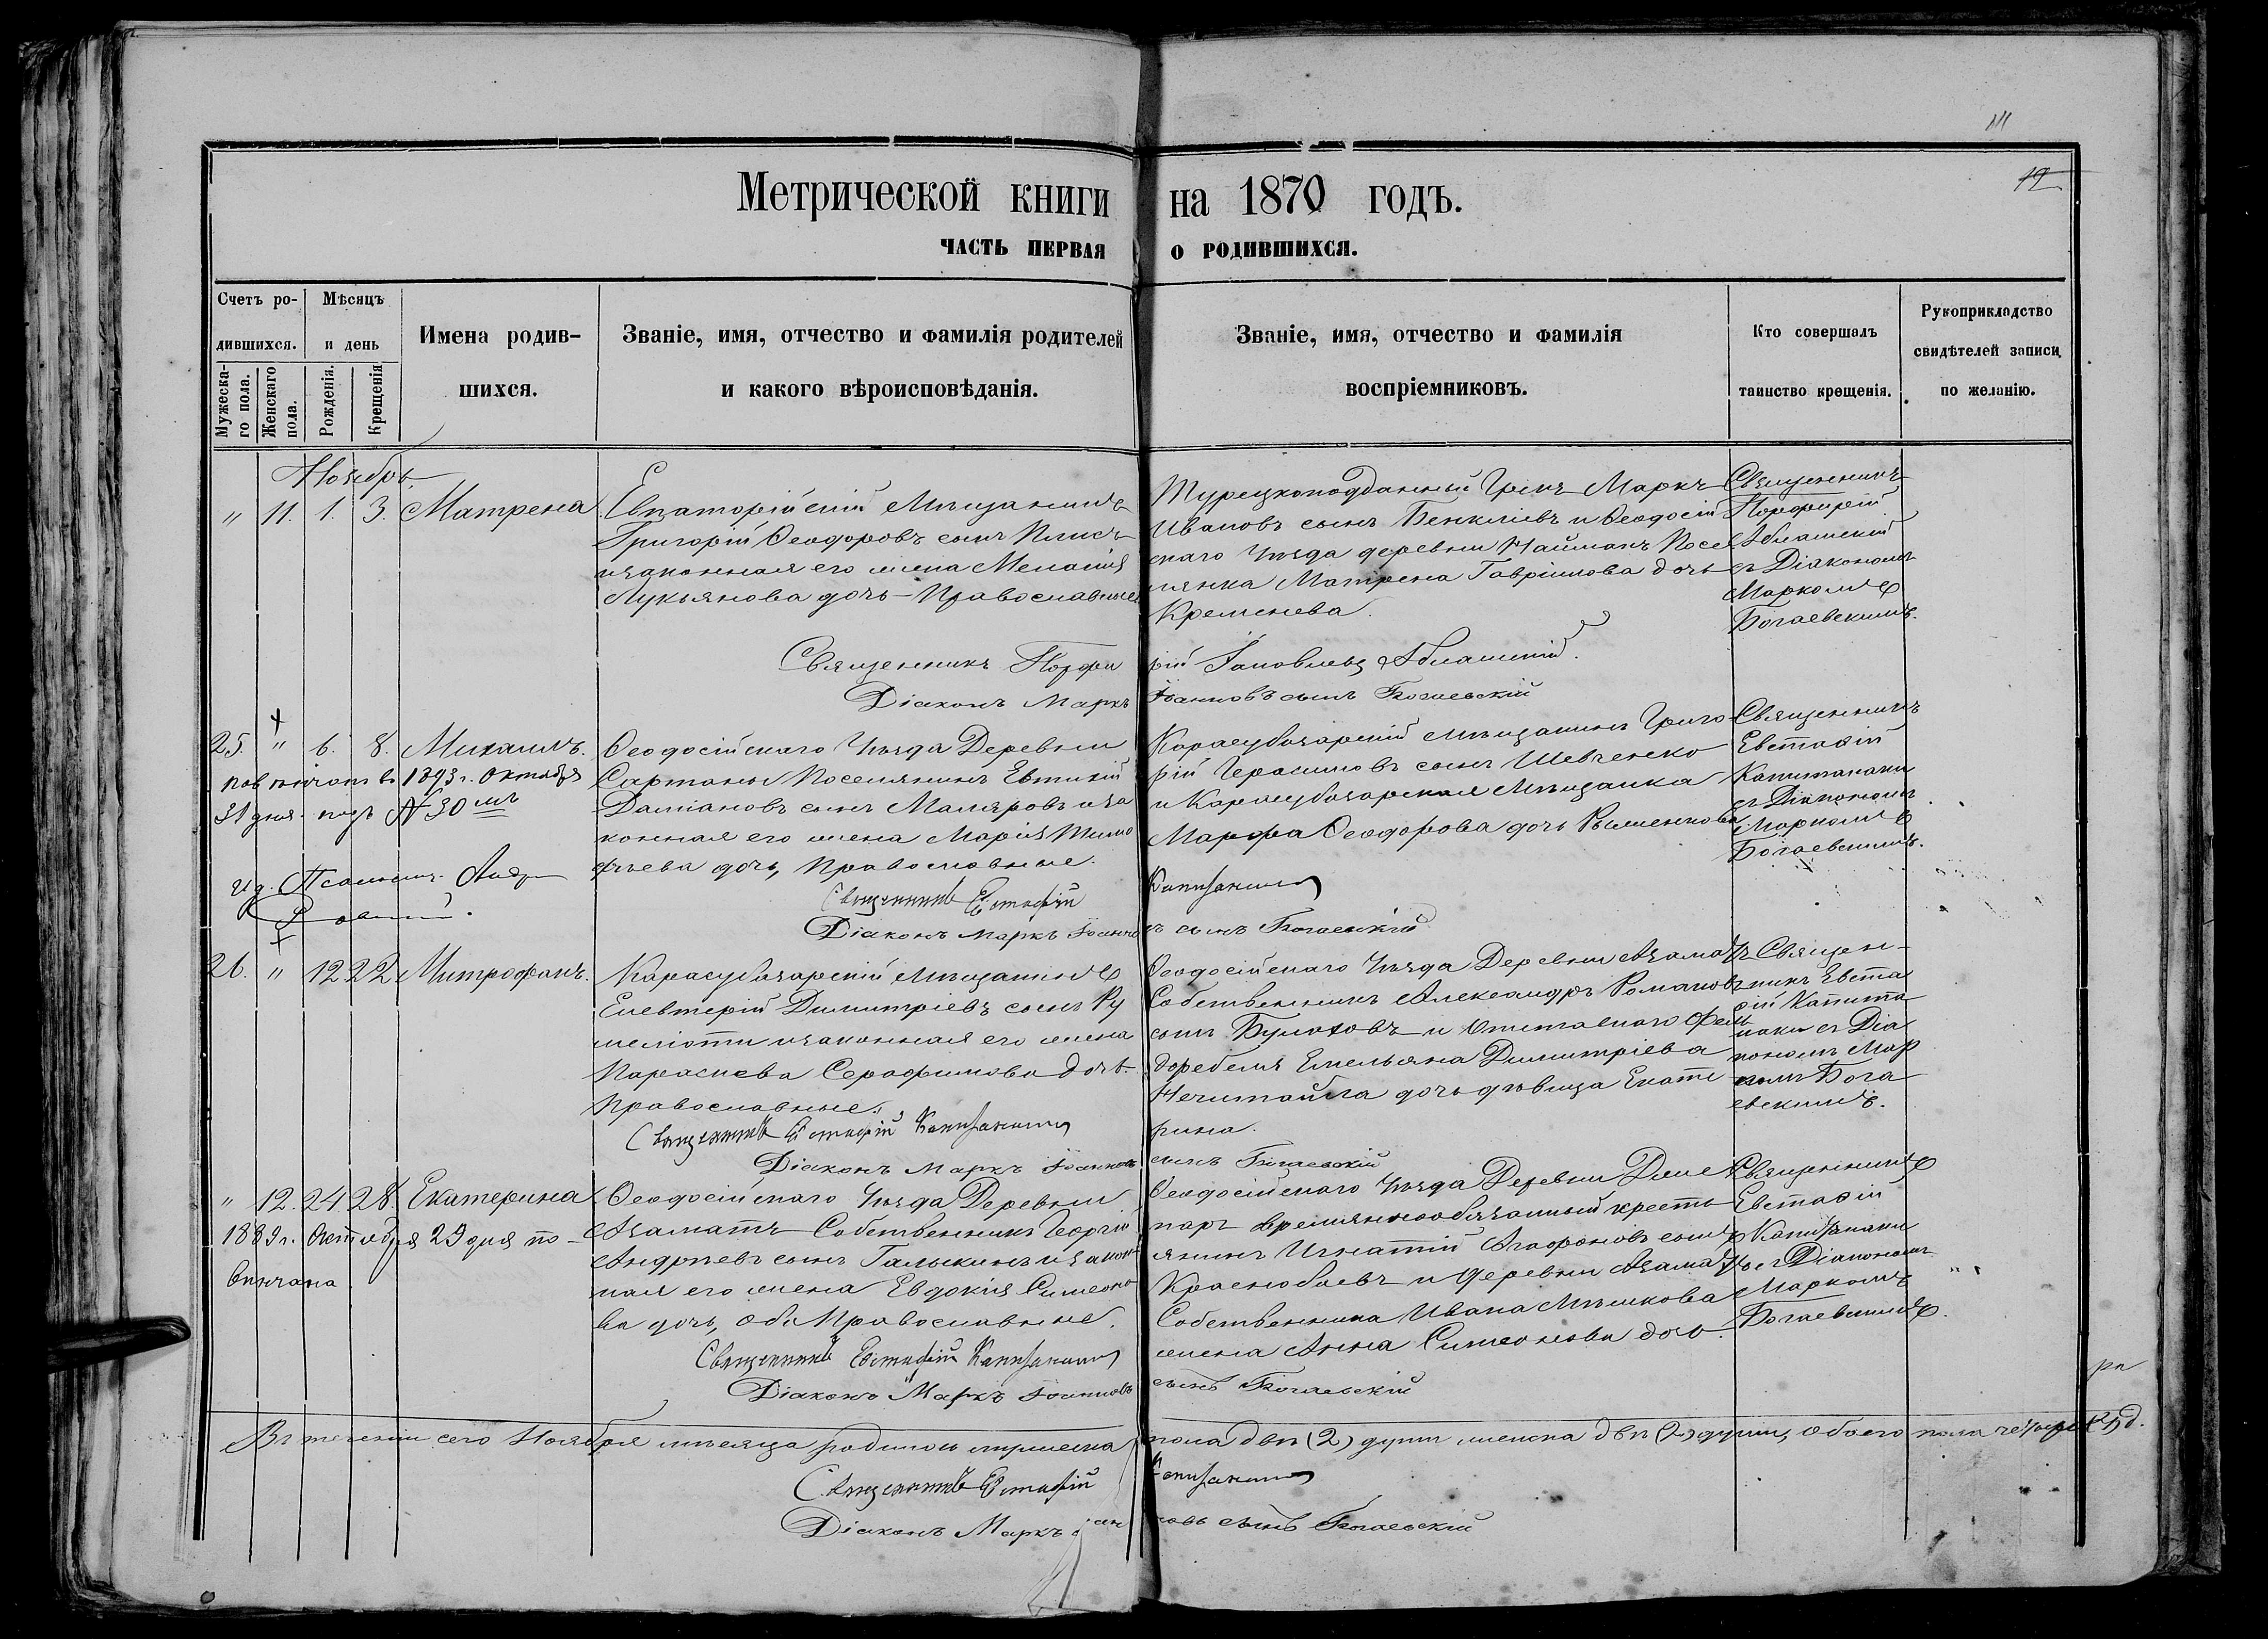 111
12
Метрической книги на 1870 годъ.
ЧАСТЬ ПЕРВАЯ О РОДИВШИХСЯ.
Счетъ ро-
дившихся.
Мужеска-
го пола.
Женскаго
пола.
Мѣсяцъ
и день
Рожденія.
Крещенія
Имена родив-
шихся.
Званіе, имя, отчество и фамилія родителей
и какого вѣроисповѣданія.
Званіе, имя, отчество и фамилія
воспріемниковъ.
Кто совершалъ
таинство крещенія.
Рукоприкладство
свидѣтелей записи
по желанію.
Ноябрь
" 11. 1. 3. Матрена
Евпаторійскій Мѣщанинъ
Григорій Ѳеодоровъ сынъ
и законная его жена Меланія
Лукьянова дочь Православные
Турецкоподданный Грекъ Маркъ
Ивановъ сынъ Бенкліевъ и Ѳеодосій
скаго Уѣзда деревни Найманъ Посел
янка Матрена Гавріилова дочь
Кременева.
Священникъ
Порфирій
Аблашскій
съ Діакономъ
Маркомъ
Богаевскимъ.
Священникъ Порфирій Іаковлевъ Аблашскій.
Діаконъ Маркъ Іоанновъ сынъ Богаевскій
25. " 6. 8. Михаилъ.
повѣнчанъ въ 1893 г. Октября
31 дня подъ № 30мъ
И. д. Псаломщ.
Ѳеодосійскаго Уѣзда Деревни
Сартаны Поселянинъ Евтихій
Даміановъ сынъ Маляровъ и за
конная его жена Марія Тимо
фѣева дочь, Православные.
Карасубазарскій Мѣщанинъ Григо
рій Герасимовъ сынъ Шевченко
и Карасубазарская Мѣщанка
Марфа Ѳеодорова дочь
Священникъ
Евстафій
Капитанаки
съ Діакономъ
Маркомъ
Богаевскимъ.
Священникъ Евстафій Капитанаки
Діаконъ Маркъ Іоанновъ сынъ Богаевскій
26. " 12 22 Митрофанъ.
Карасубазарскій Мѣщанинъ
Елевтерій Димитріевъ сынъ Ру
меліоти и законная его жена
Параскева Серафимова дочь
Православные.
Ѳеодосійскаго Уѣзда Деревни Азаматъ
Собственникъ Александръ Романовъ
сынъ Булатовъ и Отставнаго Фель
дфебеля Емельяна Димитріева
Нечитайла дочь дѣвица Екате
рина.
Священ-
никъ Евста
фій Капита
наки съ Діа
кономъ Мар
комъ Бога
евскимъ.
Священникъ Евстафій Капитанаки
Діаконъ Маркъ Іоанновъ сынъ Богаевскій
" 12. 24 28. Екатерина
1889 г. Октября 29 дня по-
вѣнчана
Ѳеодосійскаго Уѣзда Деревни
Азаматъ Собственникъ Георгій
Андреевъ сынъ Галыкинъ и закон
ная его жена Евдокія Симеоно
ва дочь, оба Православные.
Ѳеодосійскаго Уѣзда Деревни
временнообязанный кресть
янинъ Игнатій Агафоновъ сынъ
Краснобаевъ и Деревни Азаматъ
Собственника Ивана Мѣшкова
жена Анна Симеонова дочь.
Священникъ
Евстафій
Капитанаки
съ Діакономъ
Маркомъ
Богаевскимъ.
Священникъ Евстафій Капитанаки
Діаконъ Маркъ Іоанновъ сынъ Богаевскій
Въ теченіи сего Ноября мѣсяца родилось мужеска пола двѣ (2) души женска двѣ (2) души, обоего пола четыре
Священникъ Евстафій Капитанаки
Діаконъ Маркъ Іоанновъ сынъ Богаевскій